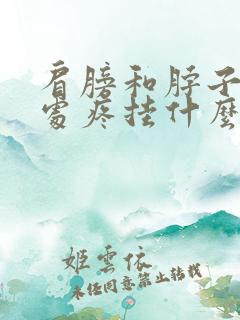 肩膀和脖子
處疼挂什麼
姬雲依
未任同意禁止转载